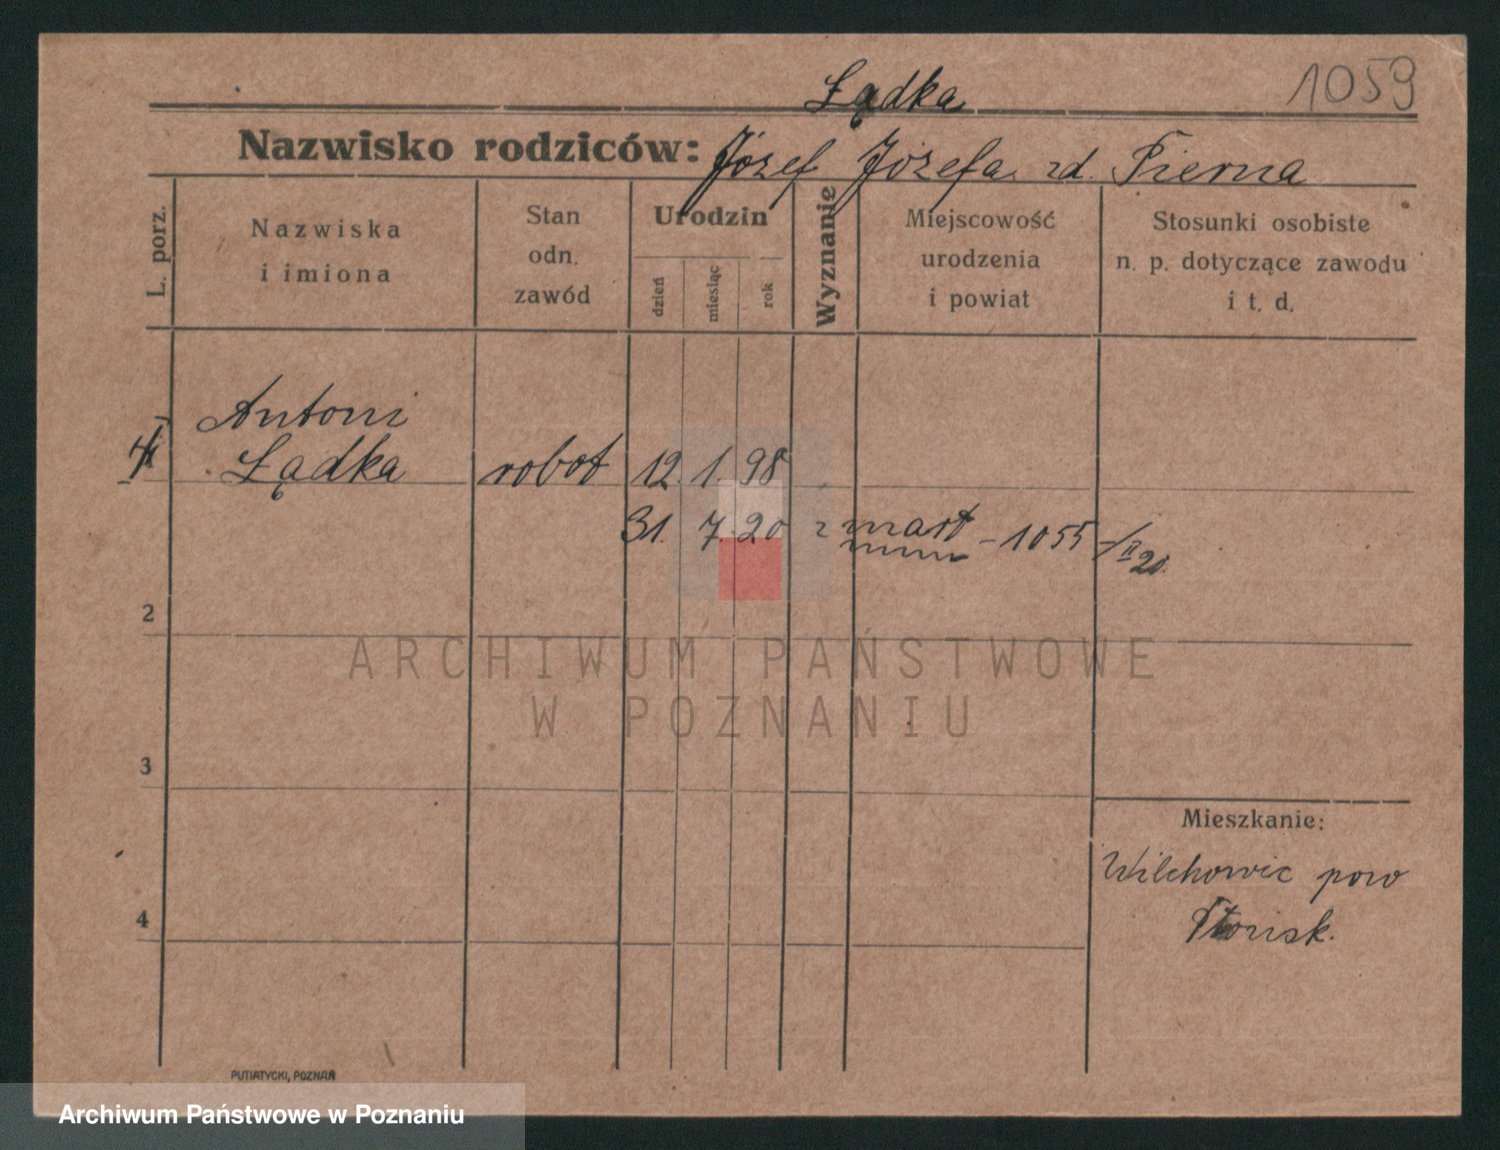 1059
Łądka
Nazwisko rodziców: Józef Józefa zd. Pierna
L. porz.
Nazwiska
i imiona
Stan
odn.
zawód
Urodzin
dzień
miesiąc
rok
Wyznanie
Miejscowość
urodzenia
i powiat
Stosunki osobiste
n. p. dotyczące zawodu
i t. d.
Antoni
Łądka robot 12. 1. 98
31. 7. 20 zmart - 1055 -/II 20.
2
3
4
Mieszkanie:
Wilchowic pow
PUTIATYCKI, POZNAŃ
ARCHIWUM PAŃSTWOWE
W POZNANIU
Archiwum Państwowe w Poznaniu